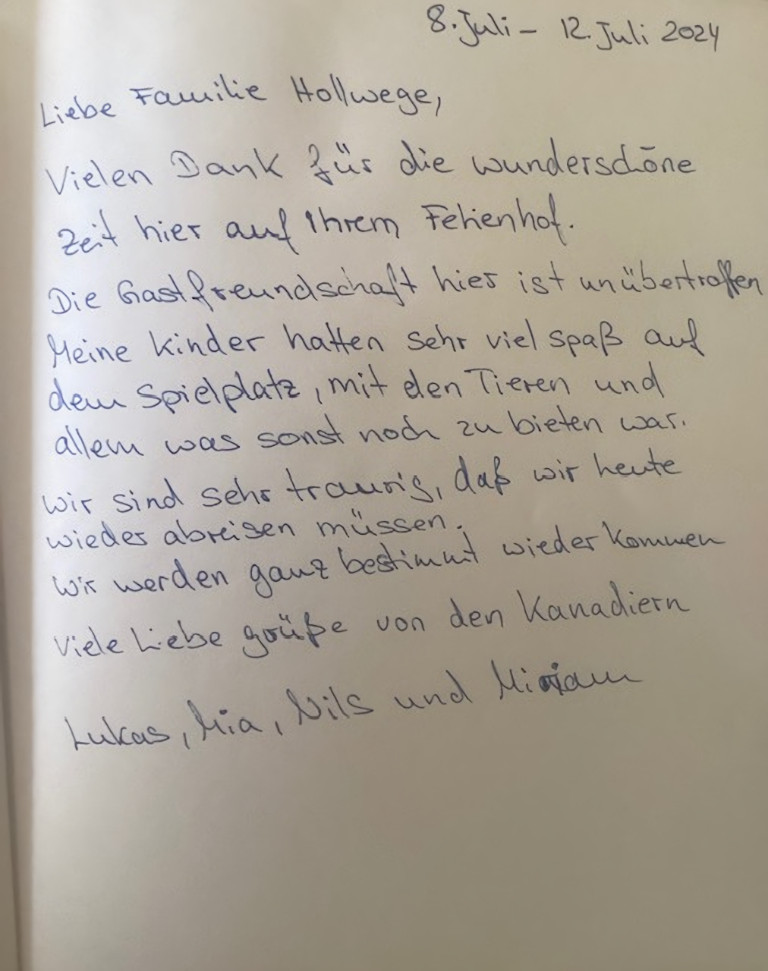 8. Juli - 12. Juli 2024
Liebe Familie Hollwege,
Vielen Dank für die wunderschöne
Zeit hier auf Ihrem Ferienhof.
Die Gastfreundschaft hier ist unübertroffen
Meine Kinder hatten sehr viel spaß auf
dem Spielplatz, mit den Tieren und
allem was sonst noch zu bieten war.
Wir sind sehr traurig, daß wir heute
wieder abreisen müssen.
Wir werden ganz bestimmt wieder kommen
Viele Liebe grüße von den Kanadiern
Lukas, Mia, Nils und Miriam